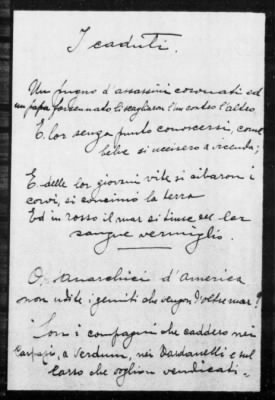 I caduti.
Un pugno d'assassini coronati ed
un papa forsennato li scagliaron l'un contro l'altro.
E lor senza punto conoscersi, come
belve si uccisero a vicenda;
E delle lor giovini vite si cibaron i
corvi, si concimò la terra
Ed in rosso il mar si tinse del lor
sangue vermiglio.
O, anarchici d'America
non udite i gemiti che vengon d'oltre mar?
Son i compagni che caddero nei
Carpazi, a Verdum, nei Dardanelli e sul
Carso che voglion vendicati.